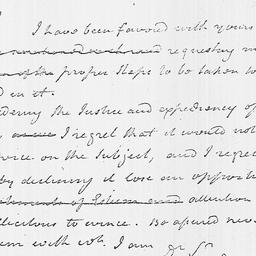 I have been favored with yours
requestng m
proper steps to be taken to
d in it.
dering the Justice and expediency of
I regret that it would not
vice on the subject, and I regre
by declining it lose an opportu
attention
llicitous to evince. Be assured nev
em with wh. I am Dr Sr